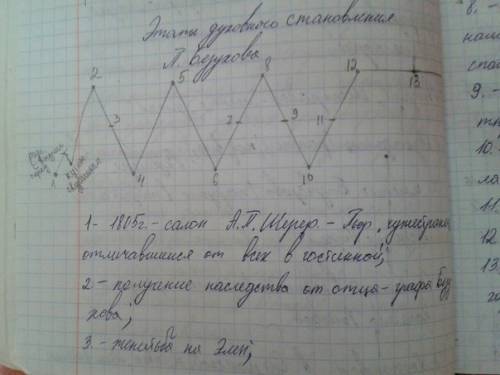 Этапы духовного становления
П. Безухова
2 5 8 12
3 7 9 11 13
1 4 6 10
1- 1805г. - салон А.П. Шерер. - Пьер,
отличавшийся от всех в гостинной;
2 - получение наследства от отца - графа Безу
хова;
3. - женитьба на Элен;
8. -
9. -
10.
11.
12
13